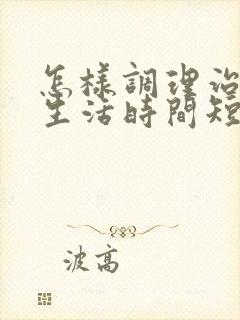 怎樣調理治
生活時間短
波高